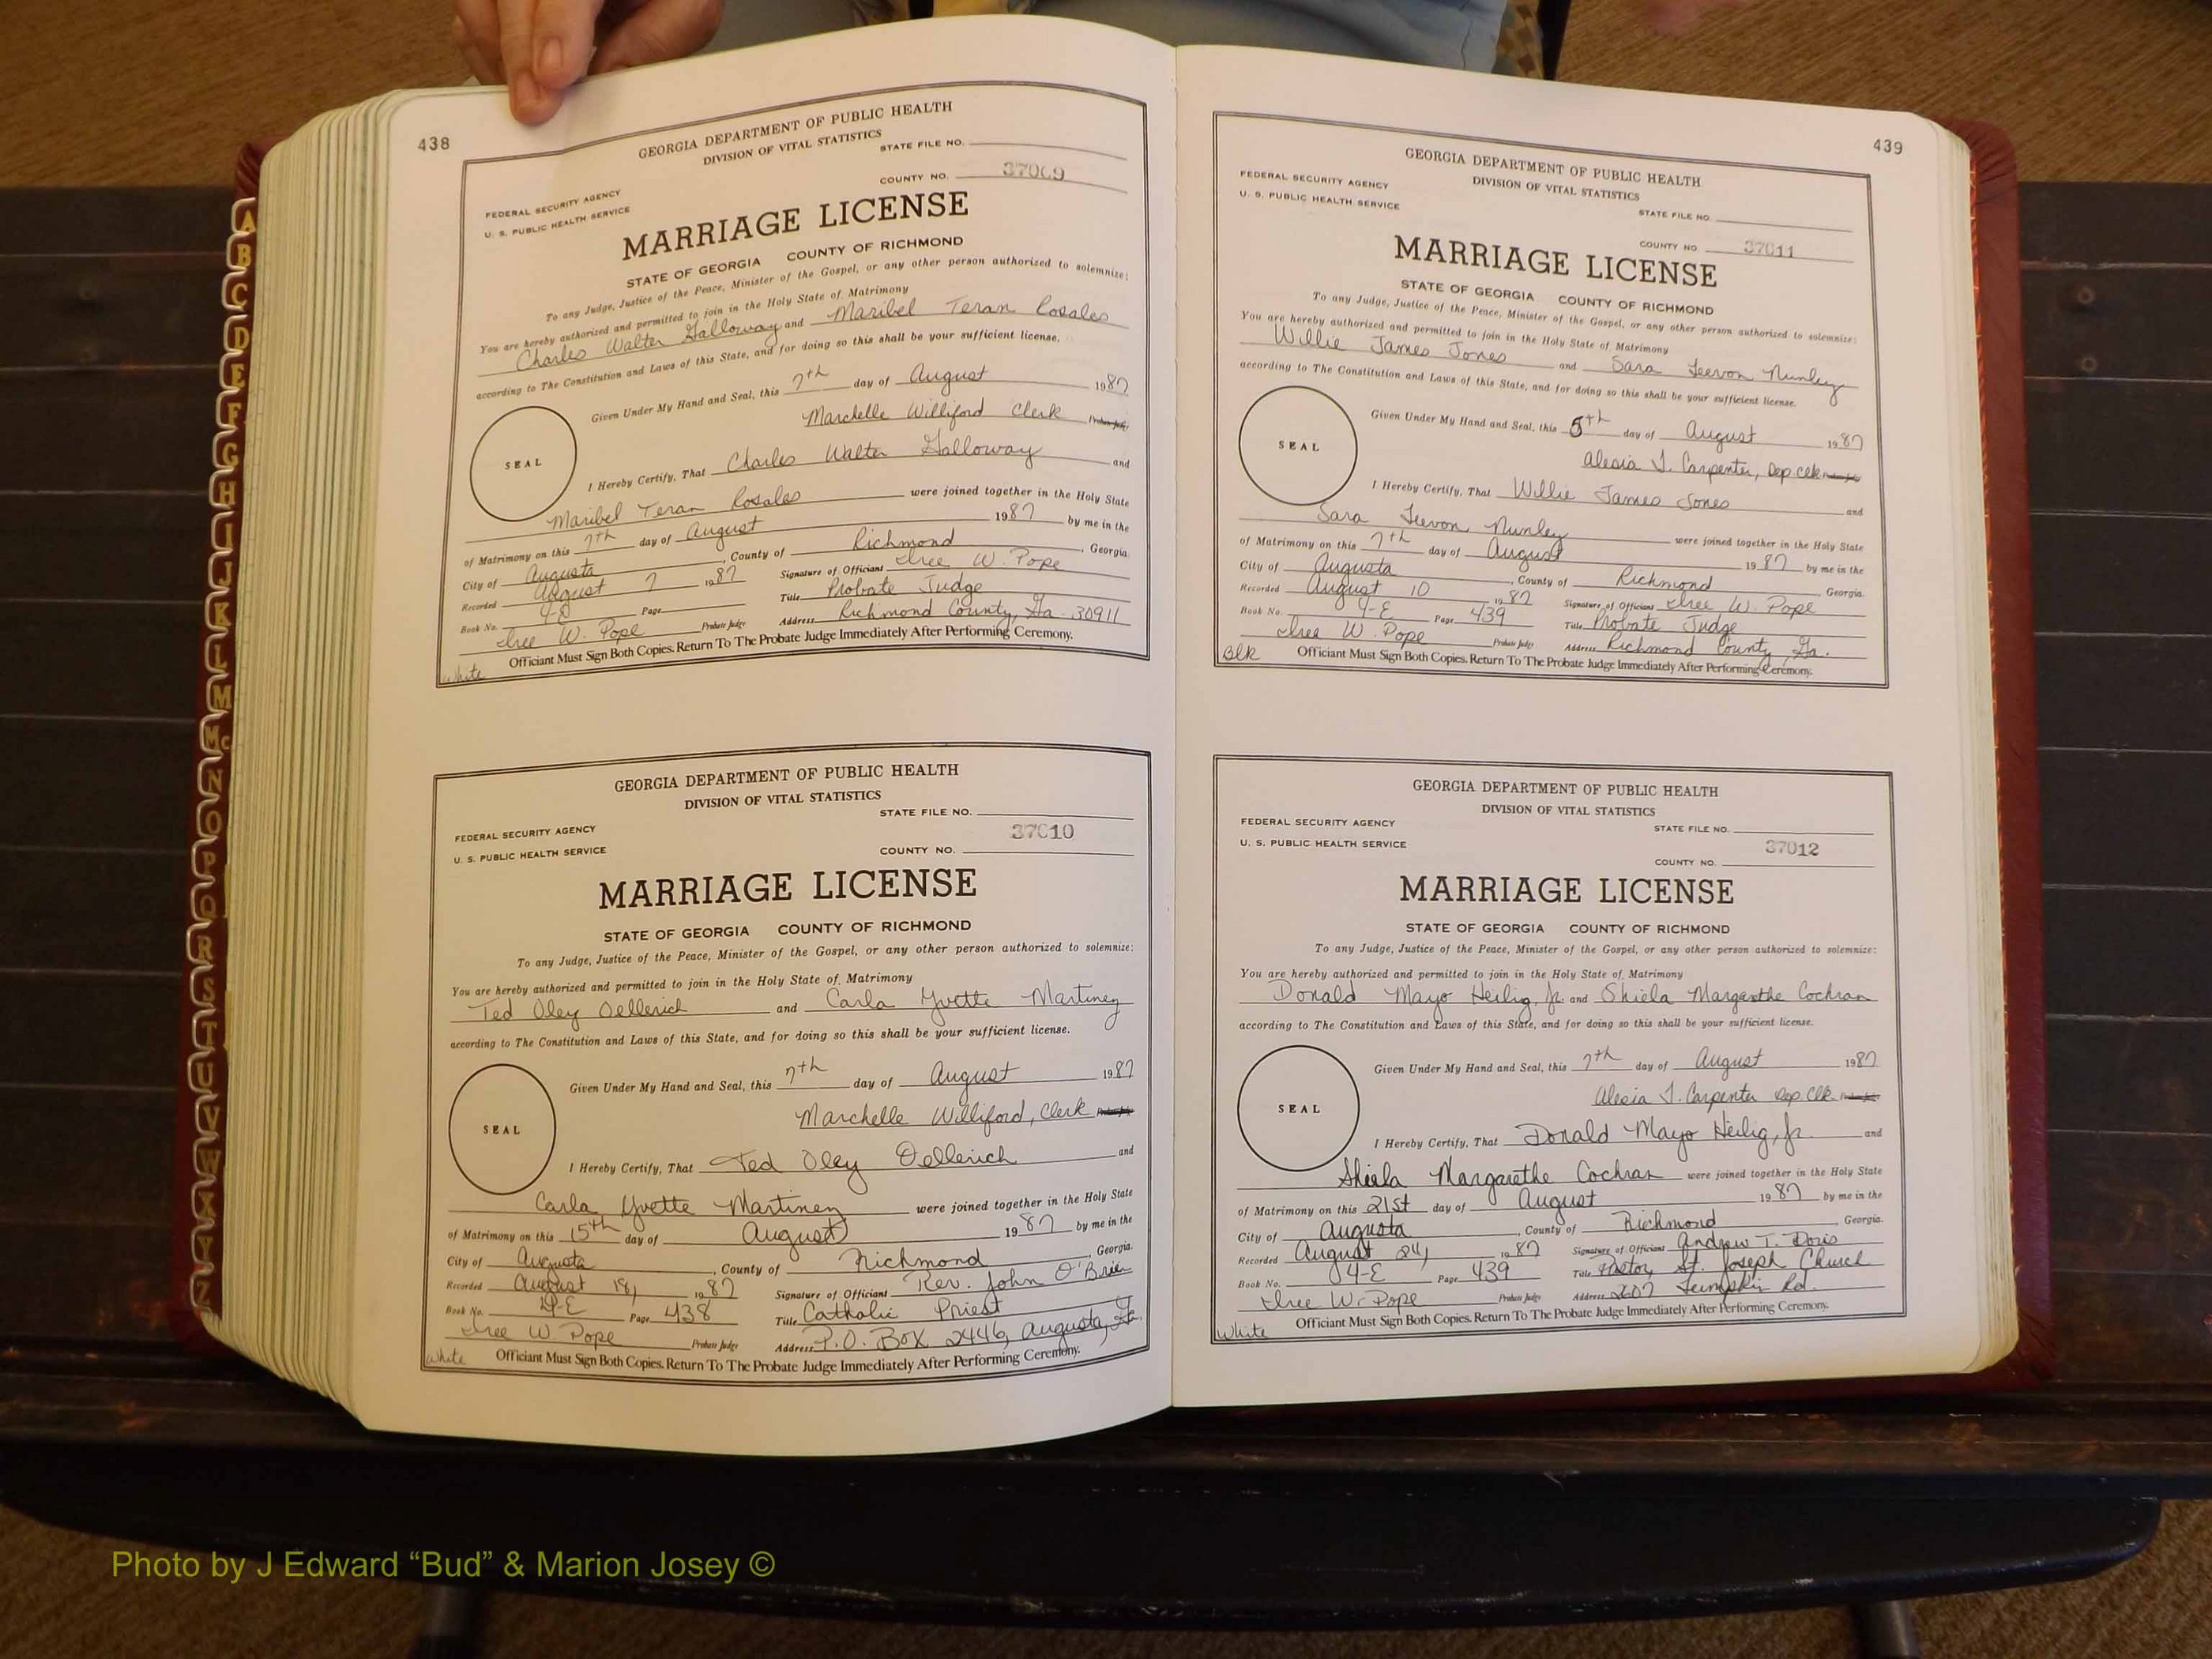 438
GEORGIA DEPARTMENT OF PUBLIC HEALTH
DIVISION OF VITAL STATISTICS
STATE FILE NO.
COUNTY NO. 37009
FEDERAL SECURITY AGENCY
U. S. PUBLIC HEALTH SERVICE
MARRIAGE LICENSE
STATE OF GEORGIA COUNTY OF RICHMOND
To any Judge, Justice of the Peace, Minister of the Gospel, or any other person authorized to solemnize:
You are hereby authorized and permitted to join in the Holy State of Matrimony
Charles Walter Galloway and Maribel Teran Rosales
according to The Constitution and Laws of this State, and for doing so this shall be your sufficient license.
Given Under My Hand and Seal, this 7th day of August 1987
Marchelle Williford Clerk Probate Judge
SEAL
I Hereby Certify, That Charles Walter Galloway and
Maribel Teran Rosales were joined together in the Holy State
of Matrimony on this 7th day of August 1987 by me in the
City of Augusta, County of Richmond, Georgia.
Recorded August 7 1987 Signature of Officiant W. Pope
Book No. Page Title Probate Judge
W. Pope Probate Judge Address Richmond County, Ga. 30911
White Officiant Must Sign Both Copies. Return To The Probate Judge Immediately After Performing Ceremony.
GEORGIA DEPARTMENT OF PUBLIC HEALTH
DIVISION OF VITAL STATISTICS
STATE FILE NO.
FEDERAL SECURITY AGENCY
37010
U. S. PUBLIC HEALTH SERVICE
COUNTY NO.
MARRIAGE LICENSE
STATE OF GEORGIA COUNTY OF RICHMOND
To any Judge, Justice of the Peace, Minister of the Gospel, or any other person authorized to solemnize:
You are hereby authorized and permitted to join in the Holy State of Matrimony
Ted Oley Oellerich and Carla Yvette Martinez
according to The Constitution and Laws of this State, and for doing so this shall be your sufficient license.
Given Under My Hand and Seal, this 7th day of August 1987
Marchelle Williford, Clerk Probate Judge
SEAL
I Hereby Certify, That Ted Oley Oellerich and
Carla Yvette Martinez were joined together in the Holy State
of Matrimony on this 15th day of August 1987 by me in the
City of Augusta, County of Richmond, Georgia.
Recorded August 18, 1987 Signature of Officiant Rev. John O'Brien
Book No. 4-E Page 438 Title Catholic Priest
W. Pope Probate Judge Address P.O. Box 2446, Augusta, Ga.
White Officiant Must Sign Both Copies. Return To The Probate Judge Immediately After Performing Ceremony.
439
GEORGIA DEPARTMENT OF PUBLIC HEALTH
DIVISION OF VITAL STATISTICS
FEDERAL SECURITY AGENCY
U. S. PUBLIC HEALTH SERVICE
STATE FILE NO.
COUNTY NO. 37011
MARRIAGE LICENSE
STATE OF GEORGIA COUNTY OF RICHMOND
To any Judge, Justice of the Peace, Minister of the Gospel, or any other person authorized to solemnize:
You are hereby authorized and permitted to join in the Holy State of Matrimony
Willie James Jones and Sara Nunley
according to The Constitution and Laws of this State, and for doing so this shall be your sufficient license.
Given Under My Hand and Seal, this 5th day of August 1987
Alesia J. Carpenter, Dep Clk Probate Judge
SEAL
I Hereby Certify, That Willie James Jones and
Sara Nunley were joined together in the Holy State
of Matrimony on this 7th day of August 1987 by me in the
City of Augusta, County of Richmond Georgia.
Recorded August 10 1987 Signature of Officiant W. Pope
Book No. 4-E Page 439 Title Probate Judge
W. Pope Probate Judge Address Richmond County, Ga.
Blk Officiant Must Sign Both Copies. Return To The Probate Judge Immediately After Performing Ceremony.
GEORGIA DEPARTMENT OF PUBLIC HEALTH
DIVISION OF VITAL STATISTICS
FEDERAL SECURITY AGENCY
STATE FILE NO.
U. S. PUBLIC HEALTH SERVICE
37012
COUNTY NO.
MARRIAGE LICENSE
STATE OF GEORGIA COUNTY OF RICHMOND
To any Judge, Justice of the Peace, Minister of the Gospel, or any other person authorized to solemnize:
You are hereby authorized and permitted to join in the Holy State of Matrimony
Donald Mayo Heilig, Jr. and Shiela Margarethe Cochran
according to The Constitution and Laws of this State, and for doing so this shall be your sufficient license.
Given Under My Hand and Seal, this 7th day of August 1987
Alesia J. Carpenter Dep. Clk. Probate Judge
SEAL
I Hereby Certify, That Donald Mayo Heilig, Jr. and
Shiela Margarethe Cochran were joined together in the Holy State
of Matrimony on this 21st day of August 1987 by me in the
City of Augusta, County of Richmond, Georgia.
Recorded August 24, 1987 Signature of Officiant Andrew T. Doris
Book No. 4-E Page 439 Title Pastor, St. Joseph Church
W. Pope Probate Judge Address 2607 Lumpkin Rd.
White Officiant Must Sign Both Copies. Return To The Probate Judge Immediately After Performing Ceremony.
A
B
C
D
E
F
G
H
I
J
K
L
M
Mc
N
O
P
Q
R
S
T
U
V
W
X
Y
Z
Photo by J Edward “Bud” & Marion Josey ©